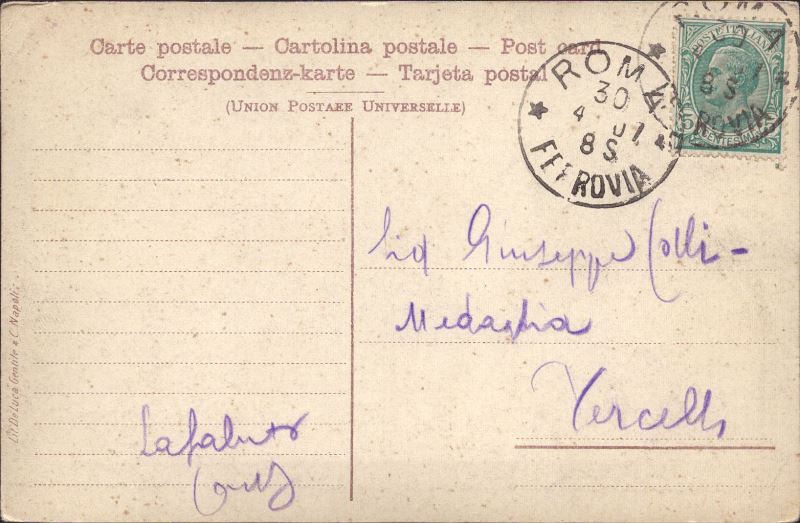 Carte postale — Cartolina postale — Post card
Correspondenz-karte — Tarjeta postal
(Union Postaee Universelle)
ROMA
30
4 07
8S
FERROVIA
POSTE ITALIANE
ROMA
8S
ROVIA
Sig Giuseppe Colli -
Medaglia
Vercelli
La saluto
De Luca Gentile & C. Napoli